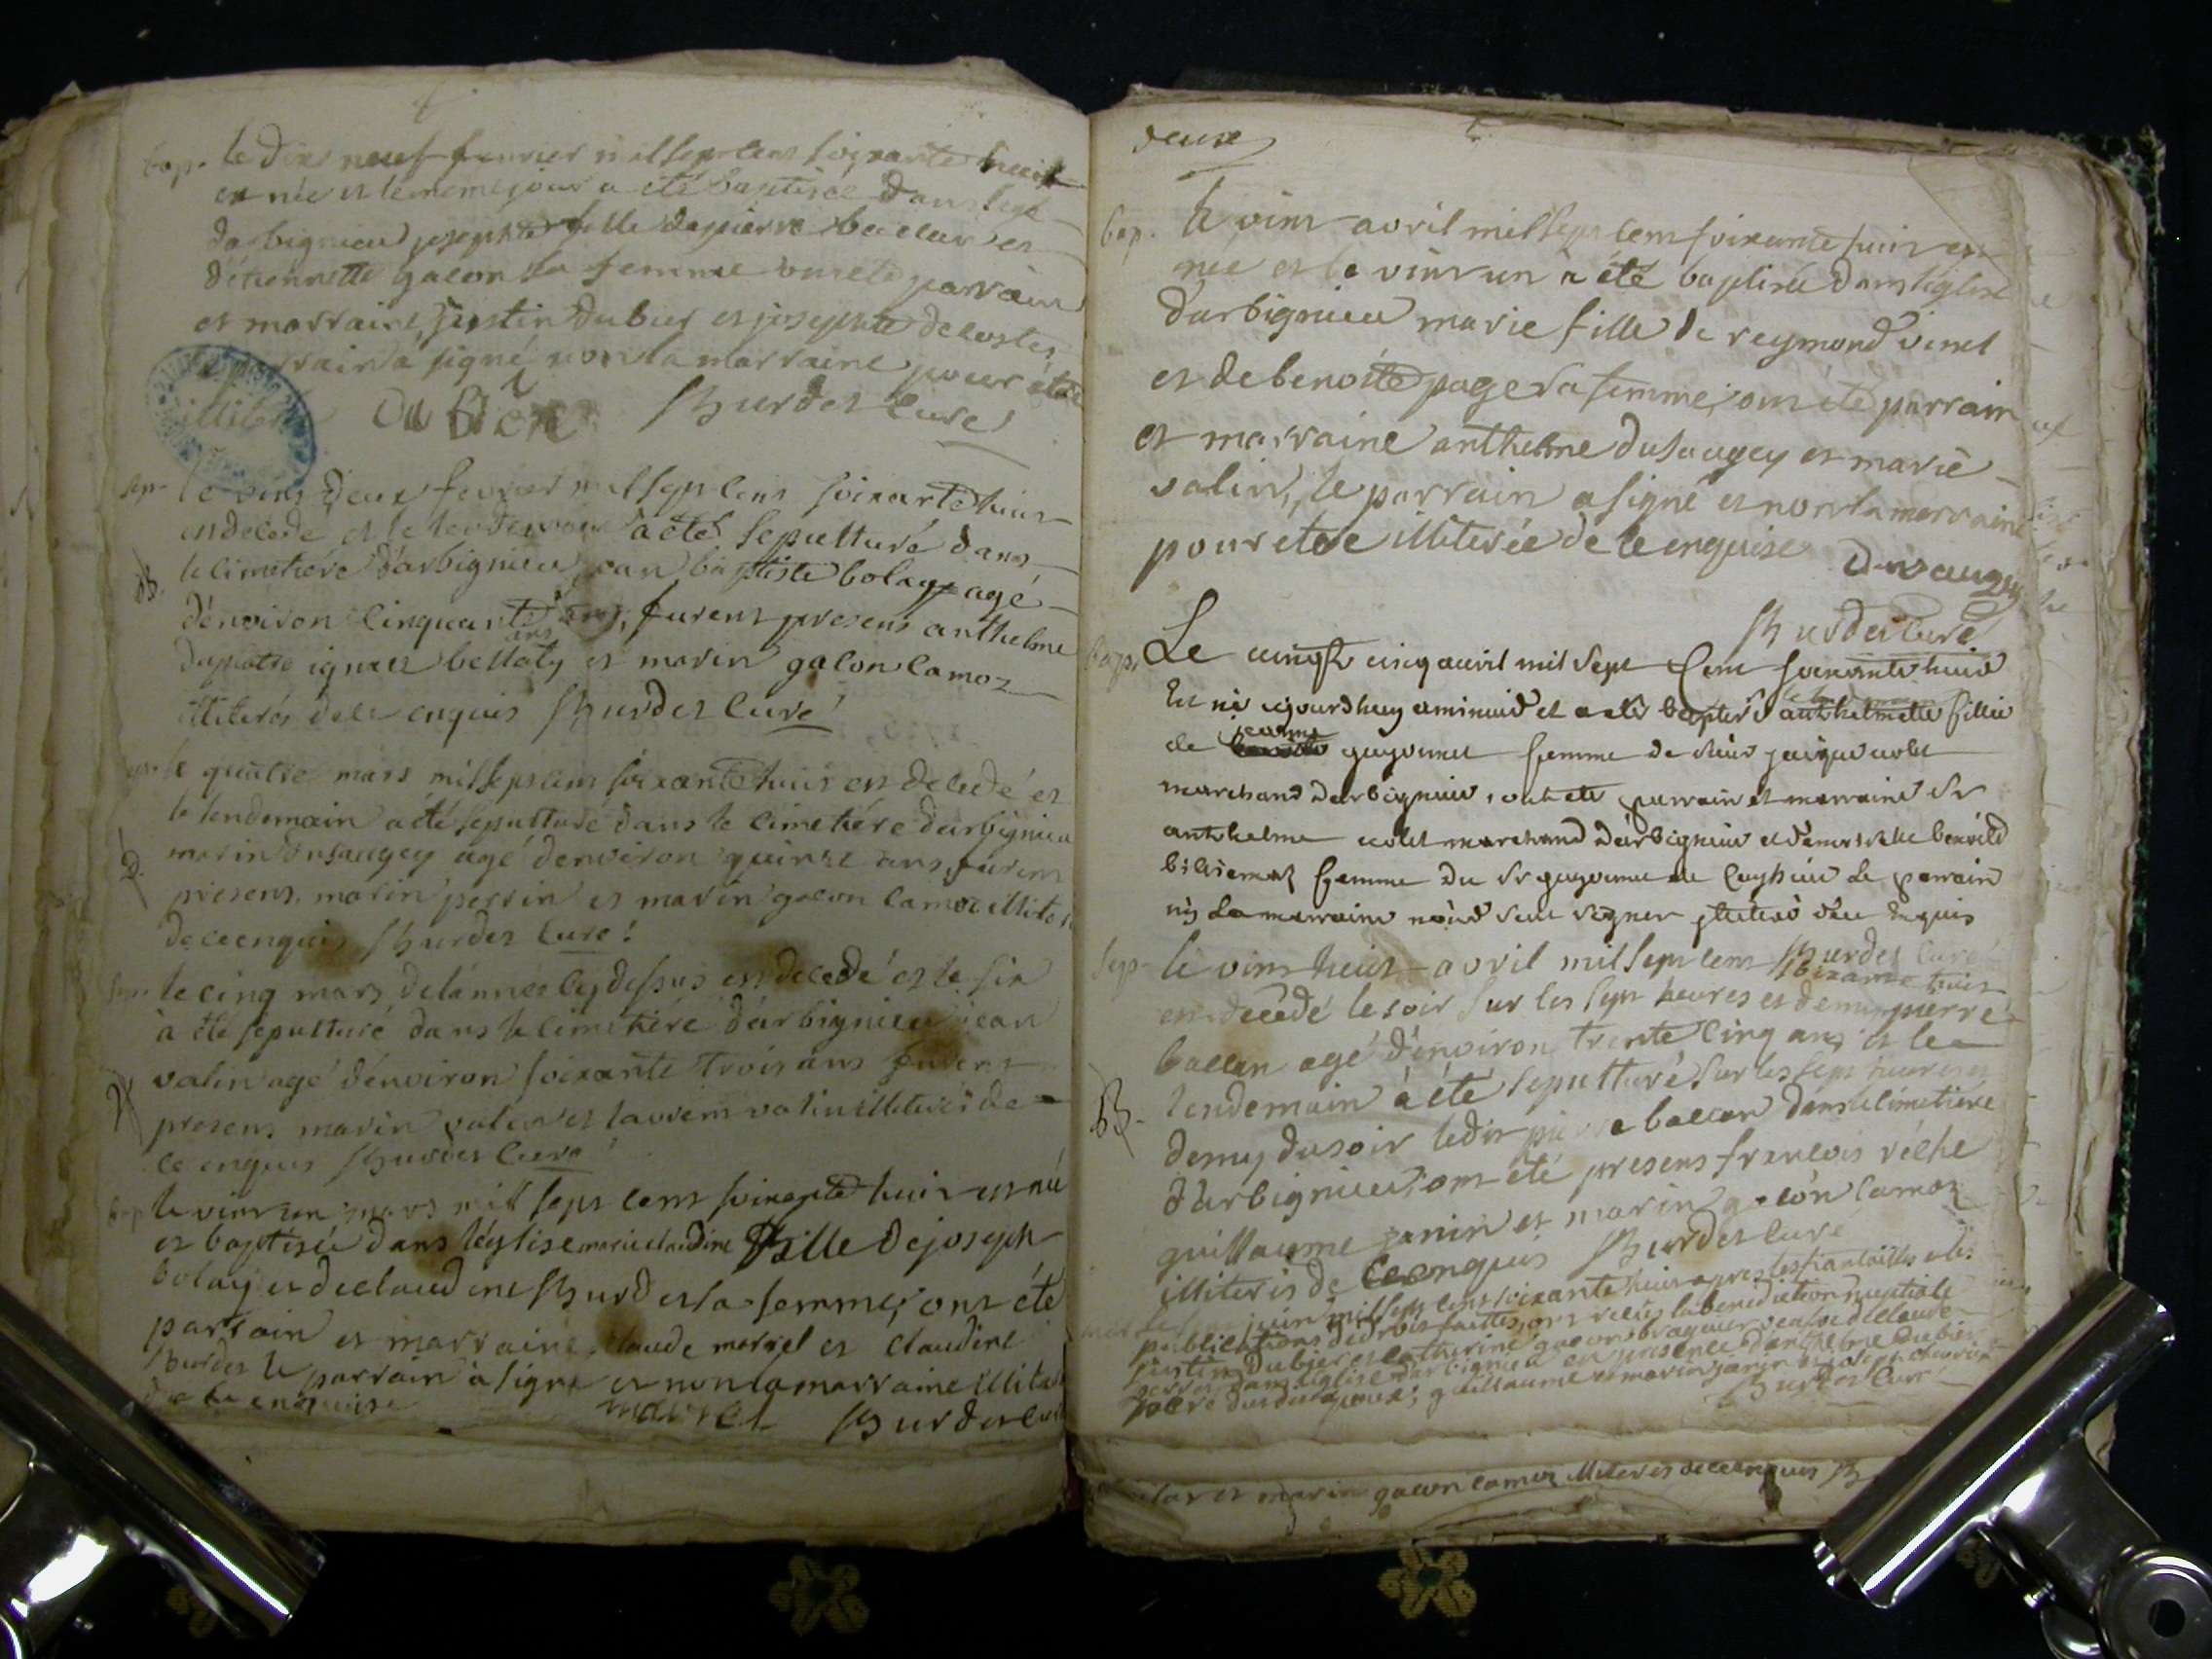 bap. le dix neuf fevrier mil sept cens soixante huit
est née et le meme jour a été baptisée dans l'egl
darbignieu josephte fille de pierre baccar et
d'étiennette gacon sa femme ont été parrain
et marraine, justin dubier et josephte decostes
rrain a signé non la marraine pour être
illite dubier Burdet curé
sep. le vint deux fevrier mil sept cens soixante huit
est decedé et le lendemain a été sepulturé dans
le cimetiére d'arbignieu jean baptiste bolay agé
d'environ cinquante ans, furent presens anthelme
ignace et marin gacon lamoz
illiterés de ce enquis Burdet curé
sep. le quatre mars mil sept cens soixante huit est decedé et
le lendemain a été sepulturé dans le cimetiére d'arbignieu
marin dusaugey agé denviron quinze ans, furent
presens, marin perrin et marin gacon lamoz illiter
de ce enquis Burdet curé
sep. le cinq mars de l'année cy dessus est decedé et le six
à été sepulturé dans le cimetiére d'arbignieu jean
valin agé d'environ soixante trois ans furent
presens marin valin et laurent valin illiterés de
ce enquis Burdet curé
bap. le vint un mars mil sept cens soixante huit est née
et baptisée dans l'église marie claudine fille de joseph
bolay et de claudine Burdet sa femme; ont été
parrain et marraine, claude marvel et claudine
Burdet le parrain à signé et non la marraine illiter
de ce enquise marvel Burdet curé
deux
bap. le vint avril mil sept cens soixante huit est
née et le vint un a été baptisée dans l'église
d'arbignieu marie fille de reymond vinet
et de benoite page sa femme; ont été parrain
et marraine anthelme dusaugey et marie
valin, le parrain a signé et non la marraine
pour etre illiterée de ce enquise Dusaugey
Burdet curé
bap. Le vingt cinq avril mil sept cent soixante huit
Est né aujourdhuy a minuit et a été baptisé anthelmette fille
de jeanne guyonnet femme de sieur jacque colet
marchand d'arbignieu, ont été parrain et marraine Sr
anthelme colet marchand d'arbignieu et demoiselle benoite
femme du Sr guyonnet de le parrain
ny la marraine signer de ce Enquis
Burdet curé
sep. le vint huit avril mil sept cens soixante huit
est decedé le soir sur les sept heures et demy pierre
baccan agé d'environ trente cinq ans et le
lendemain à été sepulturé sur les sept heures et
demy du soir ledit pierre baccan dans le cimetiére
d'arbignieu; ont été presens francois réche
guillaume janin et marin gacon lamoz
illiterés de ce enquis Burdet curé
juin mil sept cens soixante huit apres les fiancailles et les
publications de trois faittes, ont reçus la benediction nuptiale
justin dubier et catherine gacon veufve de claude
perret dans l'église d'arbignieu en presence d'anthelme dubier
pere guillaume et marin janin
Burdet curé
et marin gacon lamoz illiterés de ce enquis B